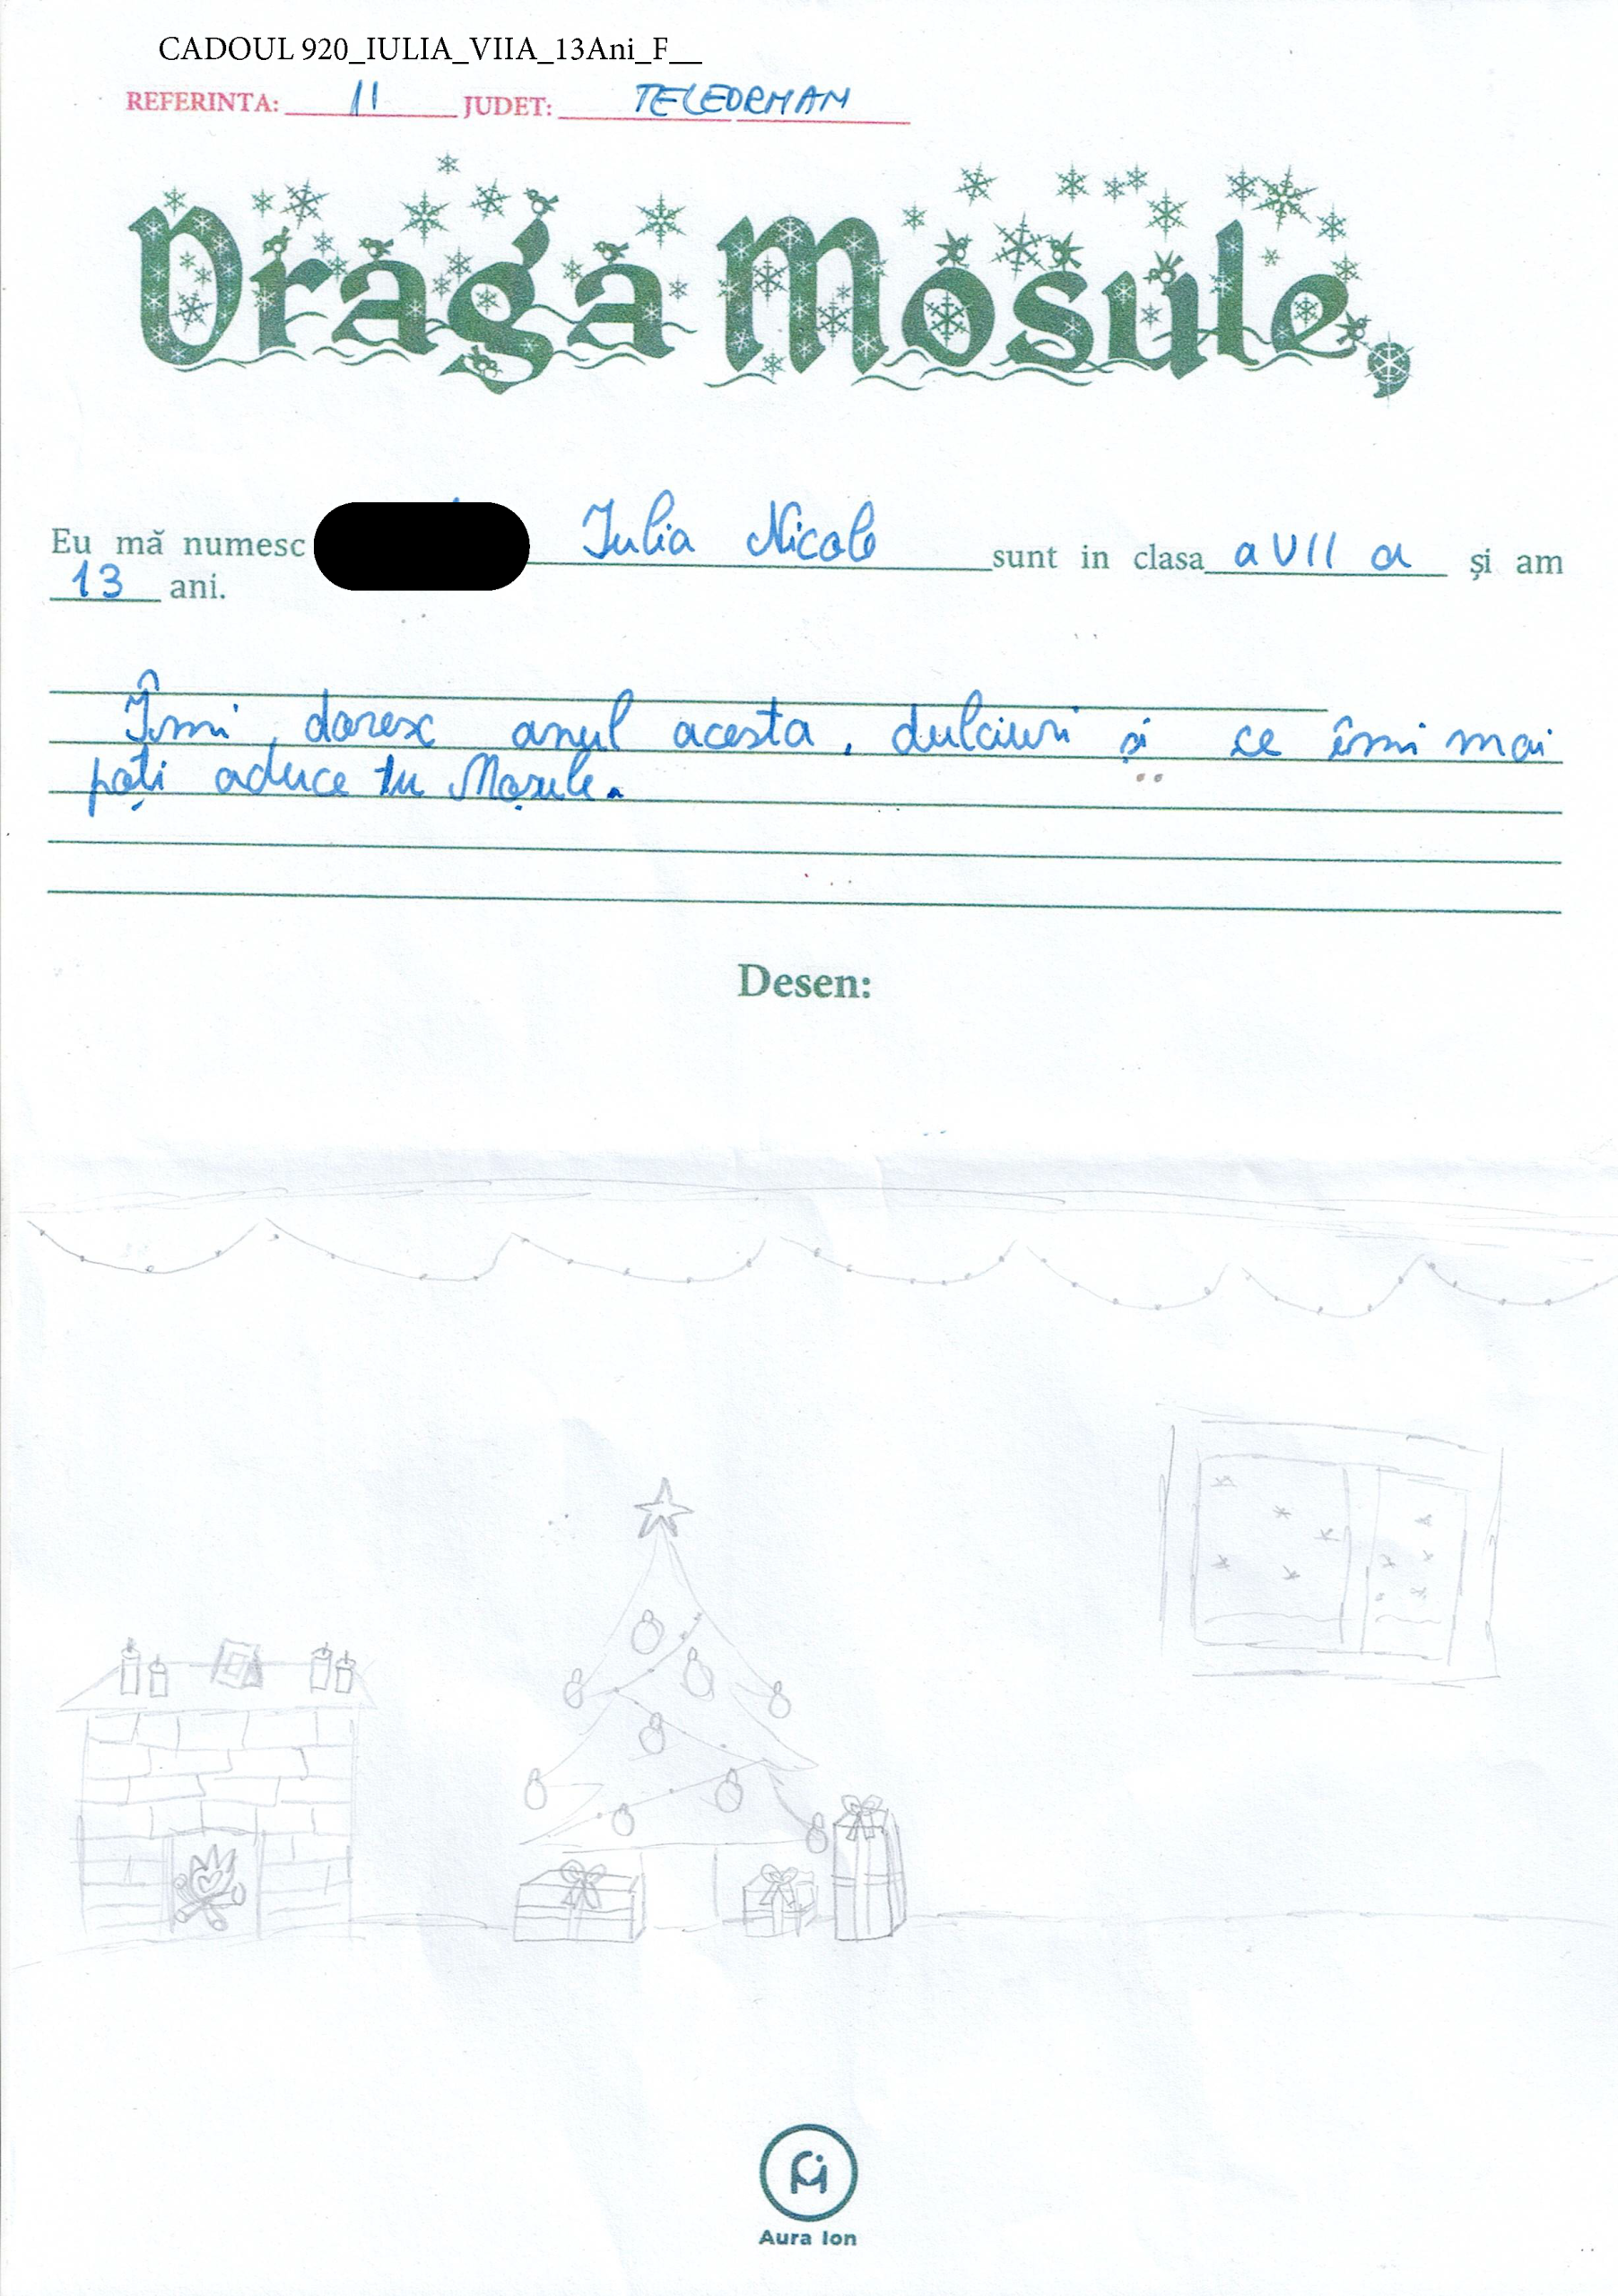 CADOUL 920_IULIA_VIIA_13Ani_F__
REFERINTA: 11 JUDET: TELEORMAN
Draga Mosule,
Eu mă numesc Iulia Nicole sunt in clasa a VII a și am
13 ani.
Îmi doresc anul acesta, dulciuri și ce îmi mai
poți aduce tu Moșule.
Desen:
Aura Ion